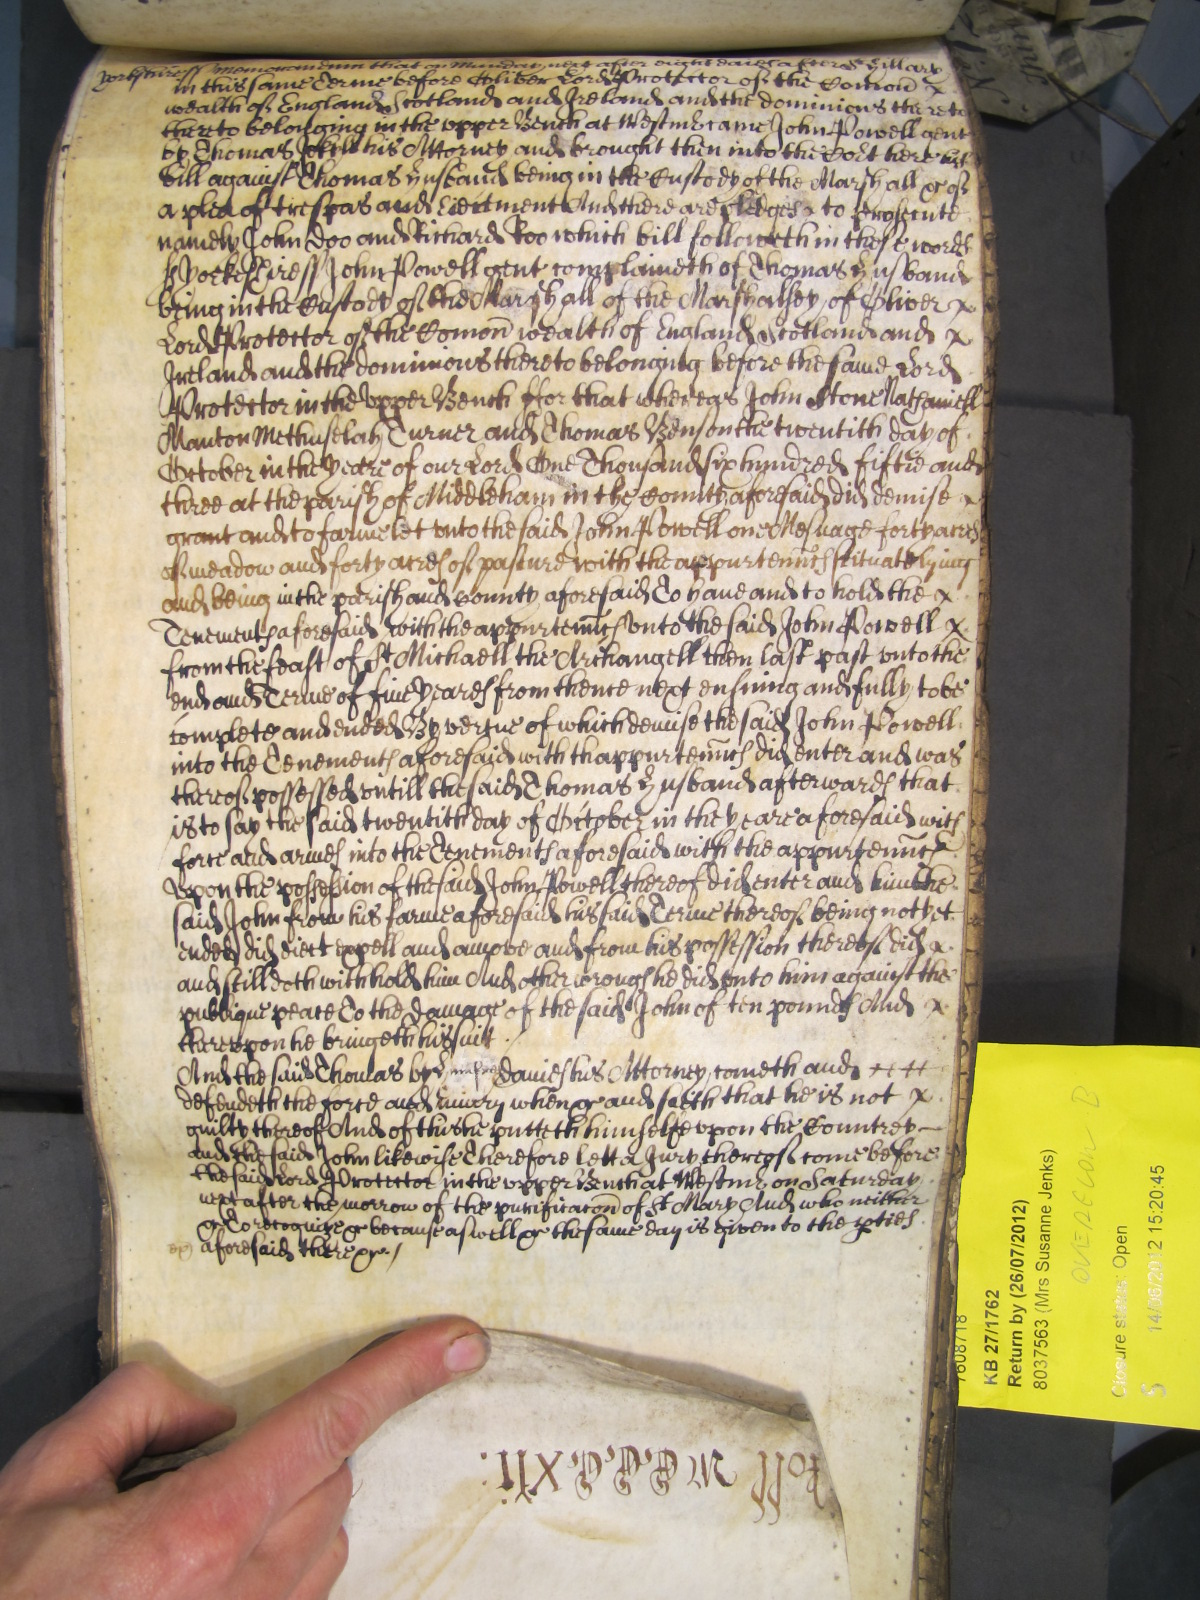 Yorkshire ss Memorandum that on Munday next after eight dayes after St Hillary
in this same Terme before Oliver Lord Protector of the Comon x
wealth of England Scotland and Ireland and the dominions thereto
thereto belonging in the vpper Bench at Westmr came John Powell gent
by Thomas Jekyll his Attorney and brought then into the Cort here his
bill against Thomas Husband being in the Custody of the Marshall &c of
a plea of trespas and Eiectment And there are pledges x to prosecute
namely John Doo and Richard Roo which bill followeth in these words
ss Yorkeshire ss John Powell gent complaineth of Thomas Husband
being in the Custody of the Marshall of the Marshalsey of Oliver x
Lord Protector of the Comon wealth of England Scotland and x
Ireland and the dominions thereto belonging before the same Lord
Protector in the vpper Bench ffor that whereas John Stone Nathaniell
Manton Methuselah Turner and Thomas Benson the twentith day of
October in the yeare of our Lord One Thousand six hundred fiftie and
three at the parish of Middleham in the County aforesaid did demise x
grant and to farme let vnto the said John Powell one Mesuage forty acres
of meadow and forty acres of pasture with the appurtennces scituate lying
and being in the parish and County aforesaid To haue and to hold the x
Tenements aforesaid with the appurtennces vnto the said John Powell x
from the feast of St Michaell the Archangell then last past vnto the
end and Terme of fiue yeares from thence next ensuing and fully to be
complete and ended By vertue of which demise the said John Powell
into the Tenements aforesaid with thappurtennces did enter and was
thereof possessed vntill the said Thomas Husband afterwards that
is to say the said twentith day of October in the yeare aforesaid with
force and armes into the Tenements aforesaid with the appurtennces
vpon the possession of the said John Powell thereof did enter and him the
said John from his farme aforesaid his said Terme thereof being not yet
ended did eiect expell and amove and from his possession thereof did x
and still doth withhold him And other wrongs he did vnto him against the
publique peace To the damage of the said John of ten pounds And x
therevpon he bringeth his suit
And the said Thomas by Davies his Attorney cometh and ++ ++
defendeth the force and iniury when &c and saith that he is not x
guilty thereof And of this he putteth himselfe vpon the Countrey
and the said John likewise Therefore lett a Jury thereof come before
the said Lord Protector in the vpper Bench at Westmr on Saturday
next after the morrow of the purificacon of St Mary And who neither
&c To recognize &c because aswell &c the same day is given to the pties
aforesaid there &c /
Roll MCCCCXII:
7608718
KB 27/1762
Return by (26/07/2012)
8037563 (Mrs Susanne Jenks)
OVERSIZE D
Closure status: Open
14/06/2012 15:20:45
5